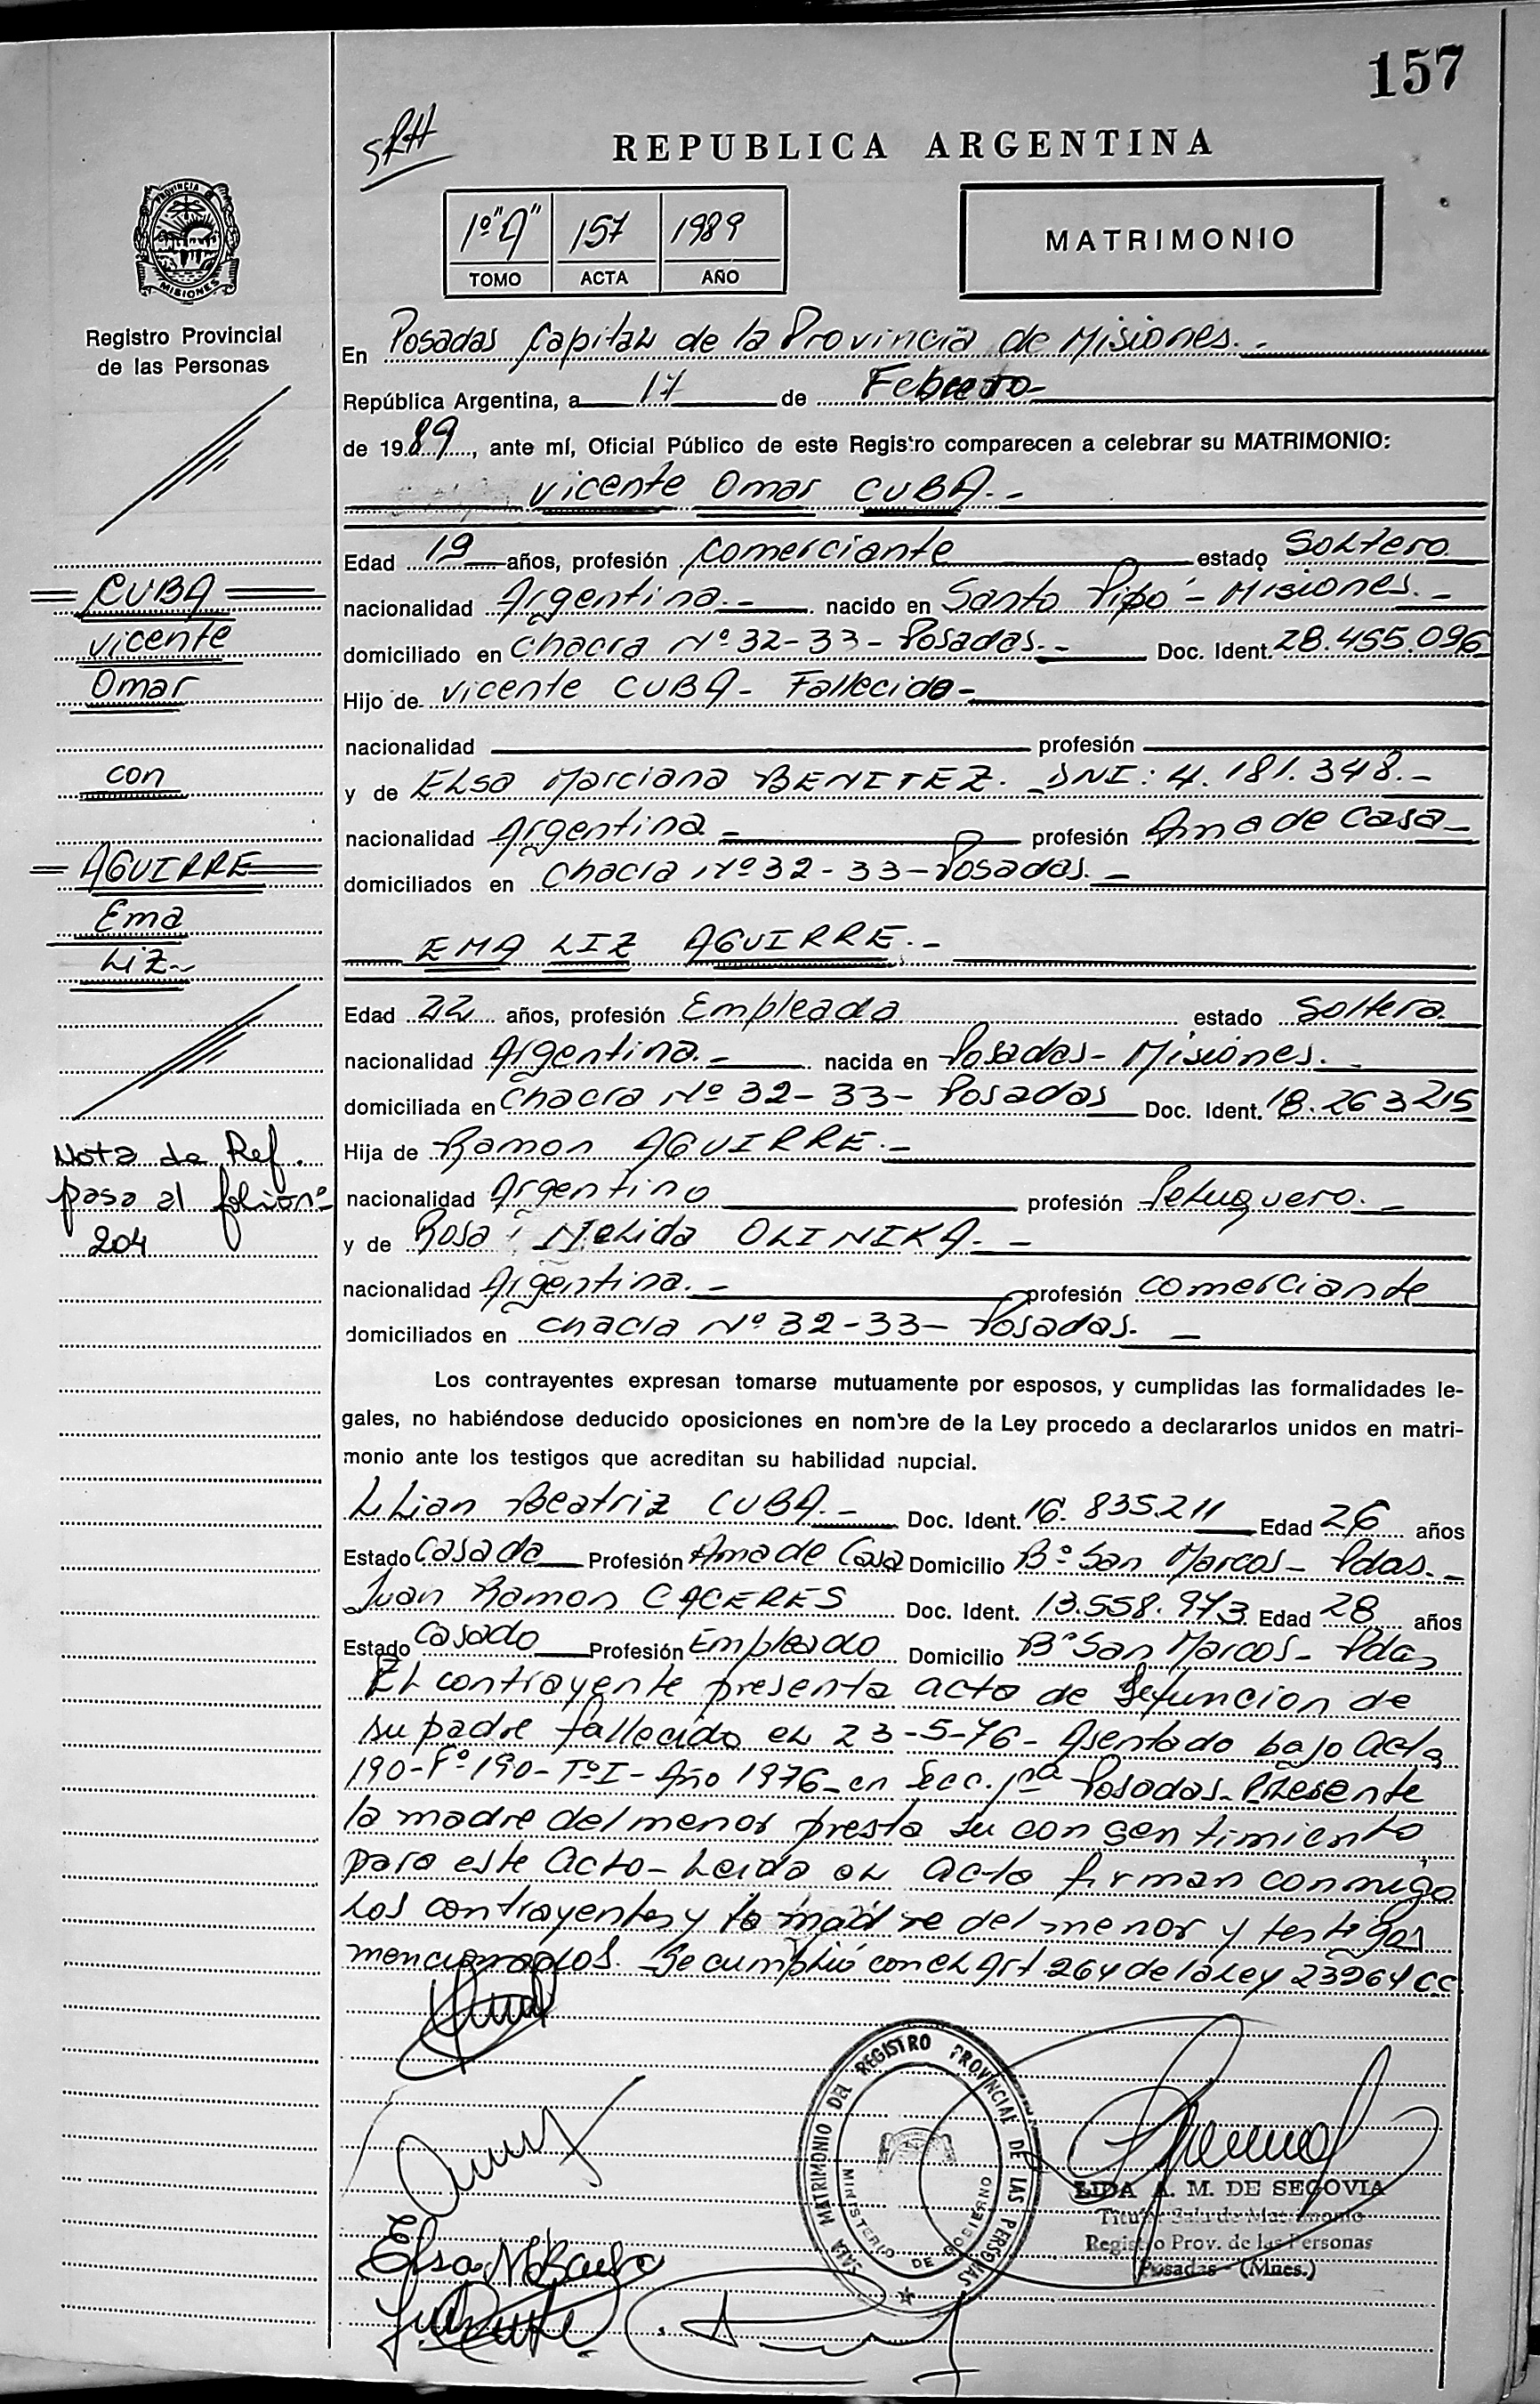 157
SRH
REPUBLICA ARGENTINA
PROVINCIA
MISIONES
1º "A" 157 1989
TOMO ACTA AÑO
MATRIMONIO
Registro Provincial
de las Personas
En Posadas Capital de la Provincia de Misiones.-
República Argentina, a 17 de Febrero-
de 1989, ante mí, Oficial Público de este Registro comparecen a celebrar su MATRIMONIO:
Vicente Omar CUBA.-
Edad 19 años, profesión Comerciante estado Soltero
nacionalidad Argentina.- nacido en Santo Pipó - Misiones.-
domiciliado en Chacra Nº 32-33- Posadas.- Doc. Ident. 28.455.096
Hijo de Vicente CUBA- Fallecido-
nacionalidad profesión
y de Elsa Marciana BENITEZ.- DNI: 4.181.348.-
nacionalidad Argentina- profesión Ama de Casa-
domiciliados en Chacra Nº 32-33- Posadas.-
EMA LIZ AGUIRRE.-
Edad 22 años, profesión Empleada estado Soltera
nacionalidad Argentina.- nacida en Posadas- Misiones.-
domiciliada en Chacra Nº 32-33- Posadas Doc. Ident. 18.263215
Hija de Ramon AGUIRRE.-
nacionalidad Argentino profesión Peluquero.-
y de Rosa Nelida OLINIKA.-
nacionalidad Argentina.- profesión Comerciante
domiciliados en Chacra Nº 32-33- Posadas.-
CUBA
Vicente
Omar
con
AGUIRRE
Ema
Liz-
Nota de Ref.
pasa al folio nº
204
Los contrayentes expresan tomarse mutuamente por esposos, y cumplidas las formalidades le-
gales, no habiéndose deducido oposiciones en nombre de la Ley procedo a declararlos unidos en matri-
monio ante los testigos que acreditan su habilidad nupcial.
Lilian Beatriz CUBA.- Doc. Ident. 16.835.211 Edad 26 años
Estado Casada Profesión Ama de Casa Domicilio Bº San Marcos- Pdas.-
Juan Ramon CACERES Doc. Ident. 13.558.973 Edad 28 años
Estado Casado Profesión Empleado Domicilio Bº San Marcos- Pdas
El contrayente presenta acta de Defuncion de
su padre fallecido el 23-5-76- Asentado bajo Acta
190-Fº 190-Tº I- Año 1976- en Secc. 1ra Posadas- Presente
la madre del menor presta su consentimiento
para este Acto- Leida el acta firman conmigo
los contrayentes y la madre del menor y testigos
mencionados.- Se cumplió con el Art 264 de la Ley 23264 CC
SALA MATRIMONIO DEL REGISTRO PROVINCIAL DE LAS PERSONAS
MINISTERIO DE GOBIERNO
LIDA A. M. DE SEGOVIA
Titular Sala de Matrimonio
Registro Prov. de las Personas
Posadas - (Mnes.)
Elsa M B